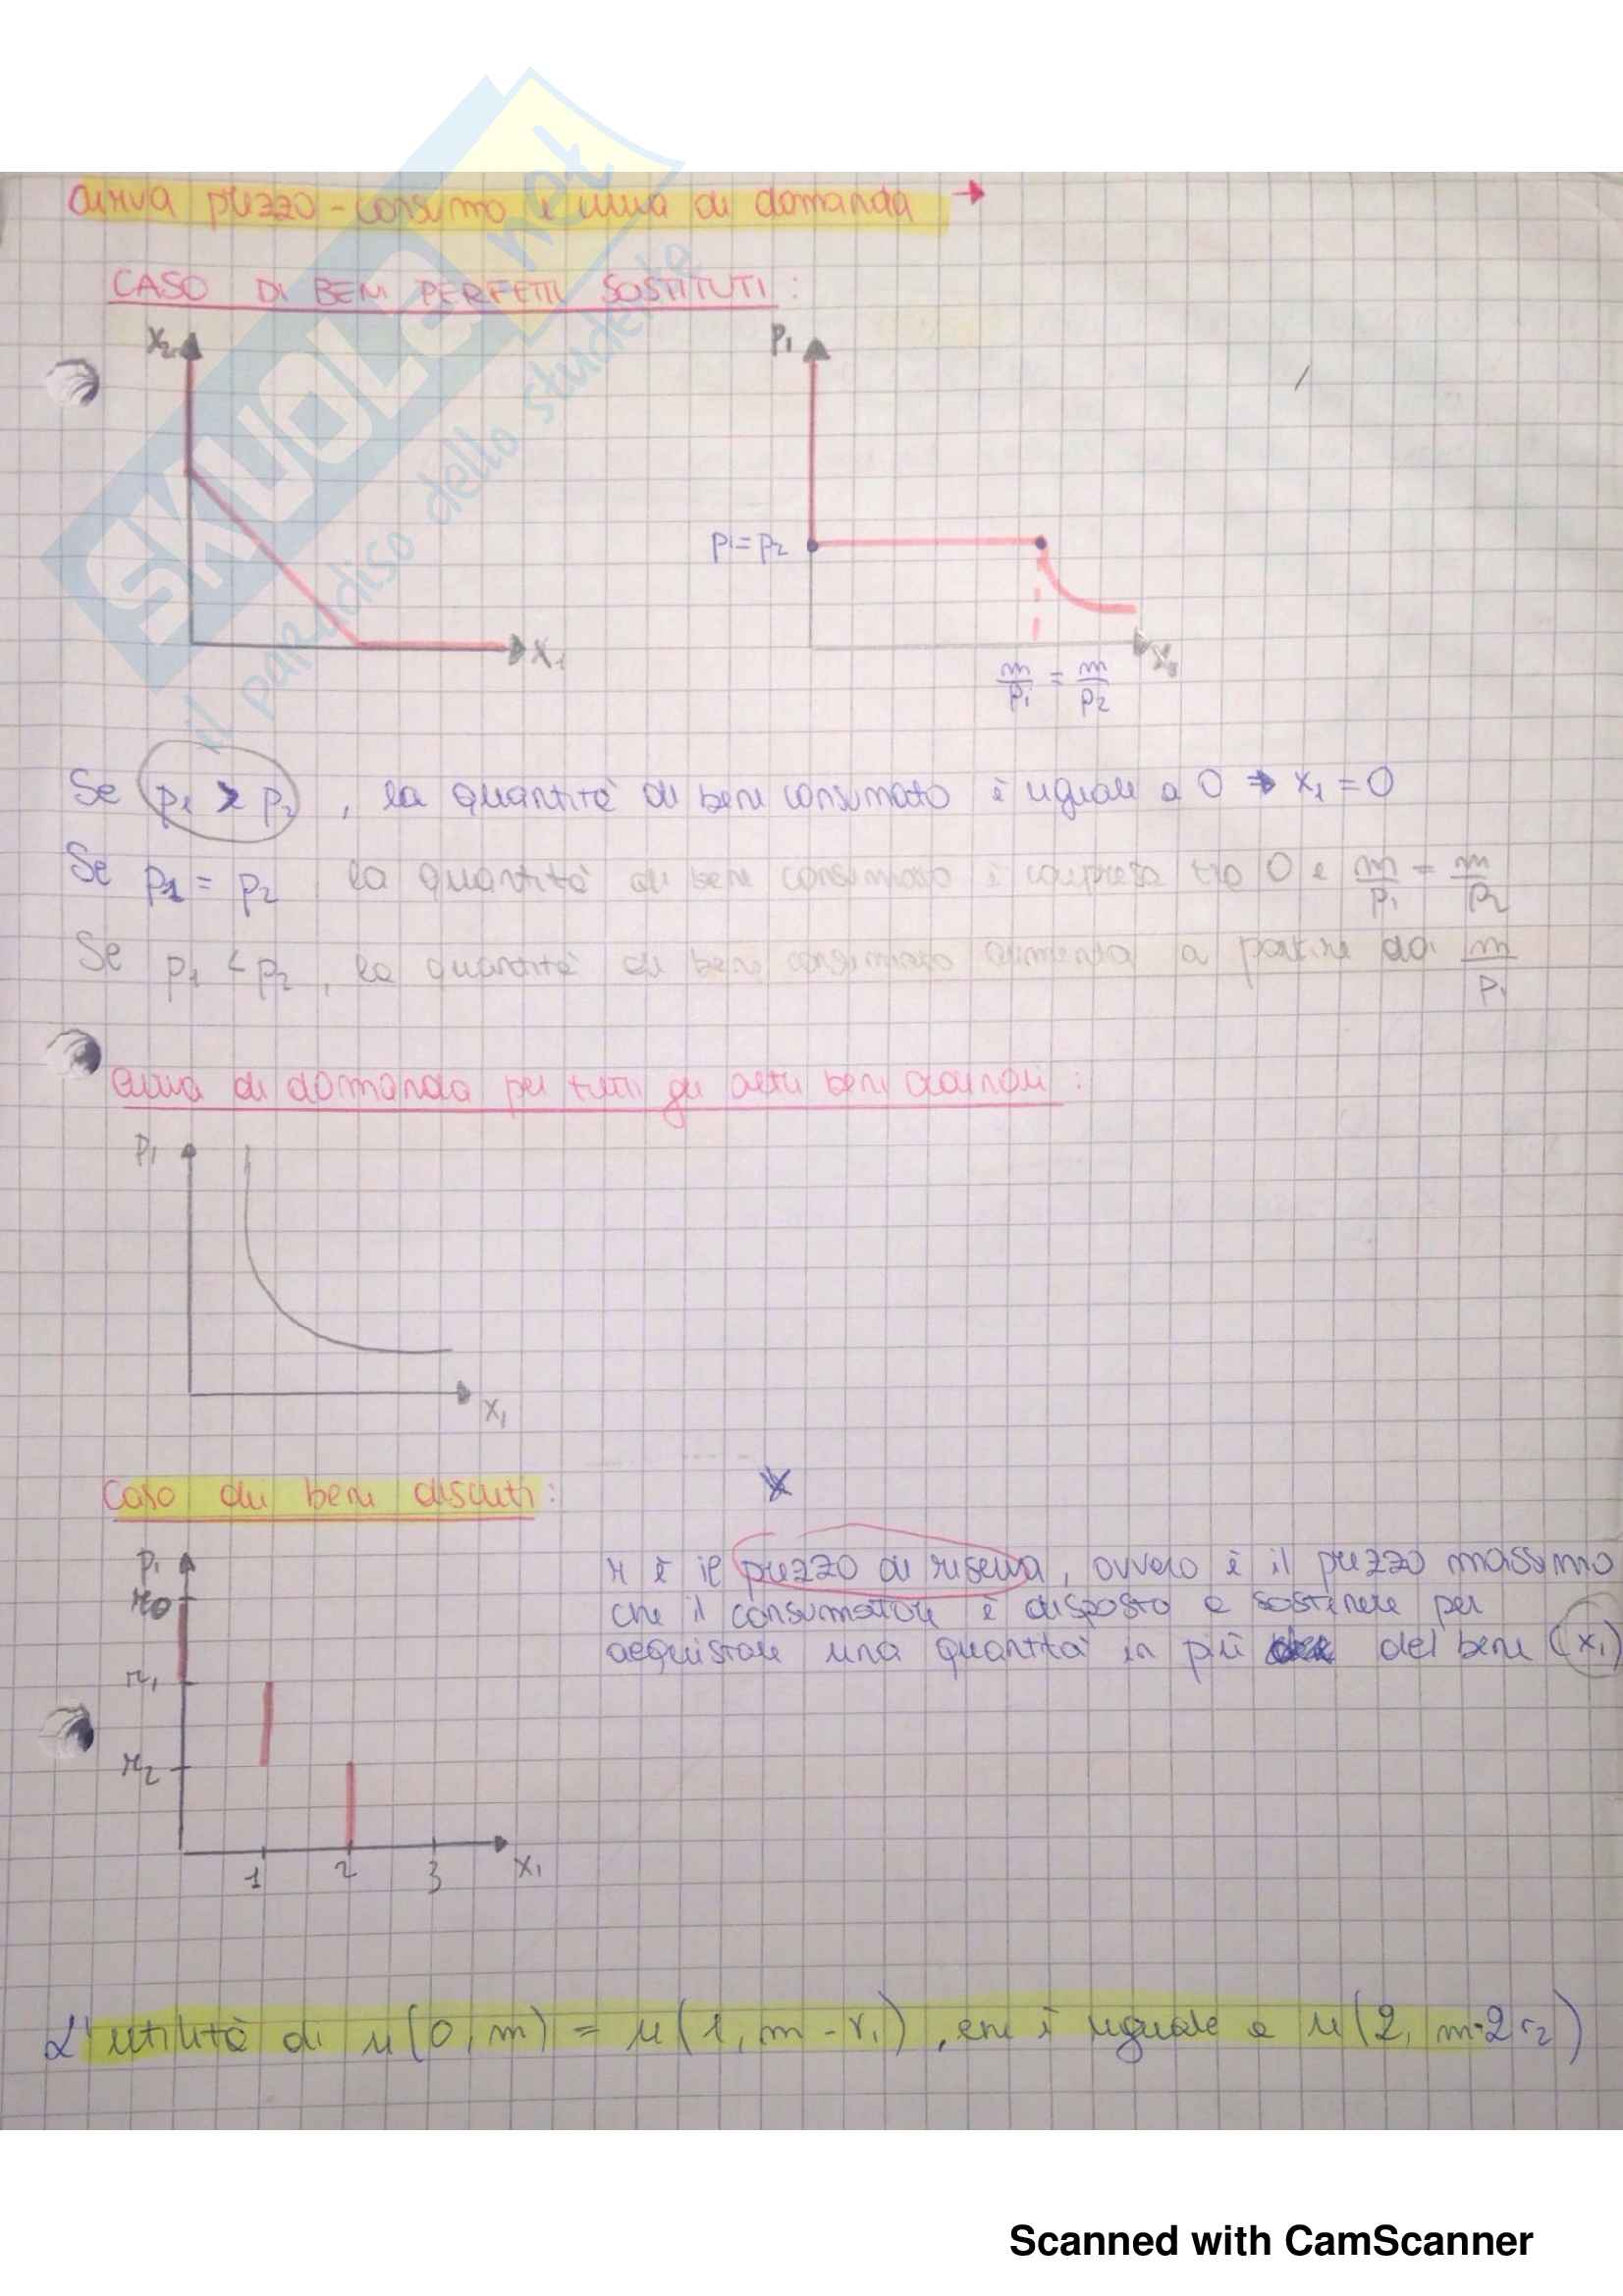 curva prezzo-consumo e curva di domanda →
CASO DI BENI PERFETTI SOSTITUTI :
x₂
x₁
p₁
p₁=p₂
x₁
m/p₁ = m/p₂
Se p₁ > p₂ , la quantità di bene consumato è uguale a 0 → x₁ = 0
Se p₁ = p₂ , la quantità di bene consumato è compresa tra 0 e m/p₁ = m/p₂
Se p₁ < p₂ , la quantità di bene consumato aumenta a partire da m/p₁
curva di domanda per tutti gli altri beni ordinari :
p₁
x₁
Caso dei beni discreti :
p₁
r₀
r₁
r₂
1 2 3 x₁
r è il prezzo di riserva, ovvero è il prezzo massimo
che il consumatore è disposto a sostenere per
acquistare una quantità in più del bene (x₁)
L'utilità di u(0, m) = u(1, m - r₁), che è uguale a u(2, m-2r₂)
SKUOLA.net
il paradiso dello studente
Scanned with CamScanner